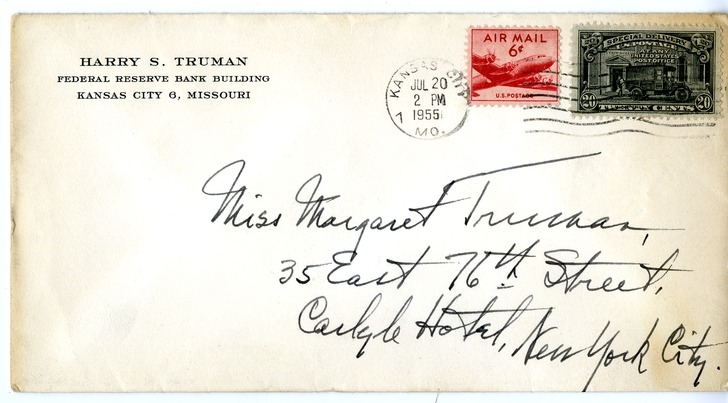 HARRY S. TRUMAN
FEDERAL RESERVE BANK BUILDING
KANSAS CITY 6, MISSOURI
KANSAS CITY
JUL 20
2 PM
1955
7
MO.
AIR MAIL
6¢
U.S. POSTAGE
SPECIAL DELIVERY
U.S. POSTAGE
AT ANY
UNITED STATES
POST OFFICE
20 TWENTY CENTS 20
Miss Margaret Truman,
35 East 76th Street,
Carlyle Hotel, New York City.